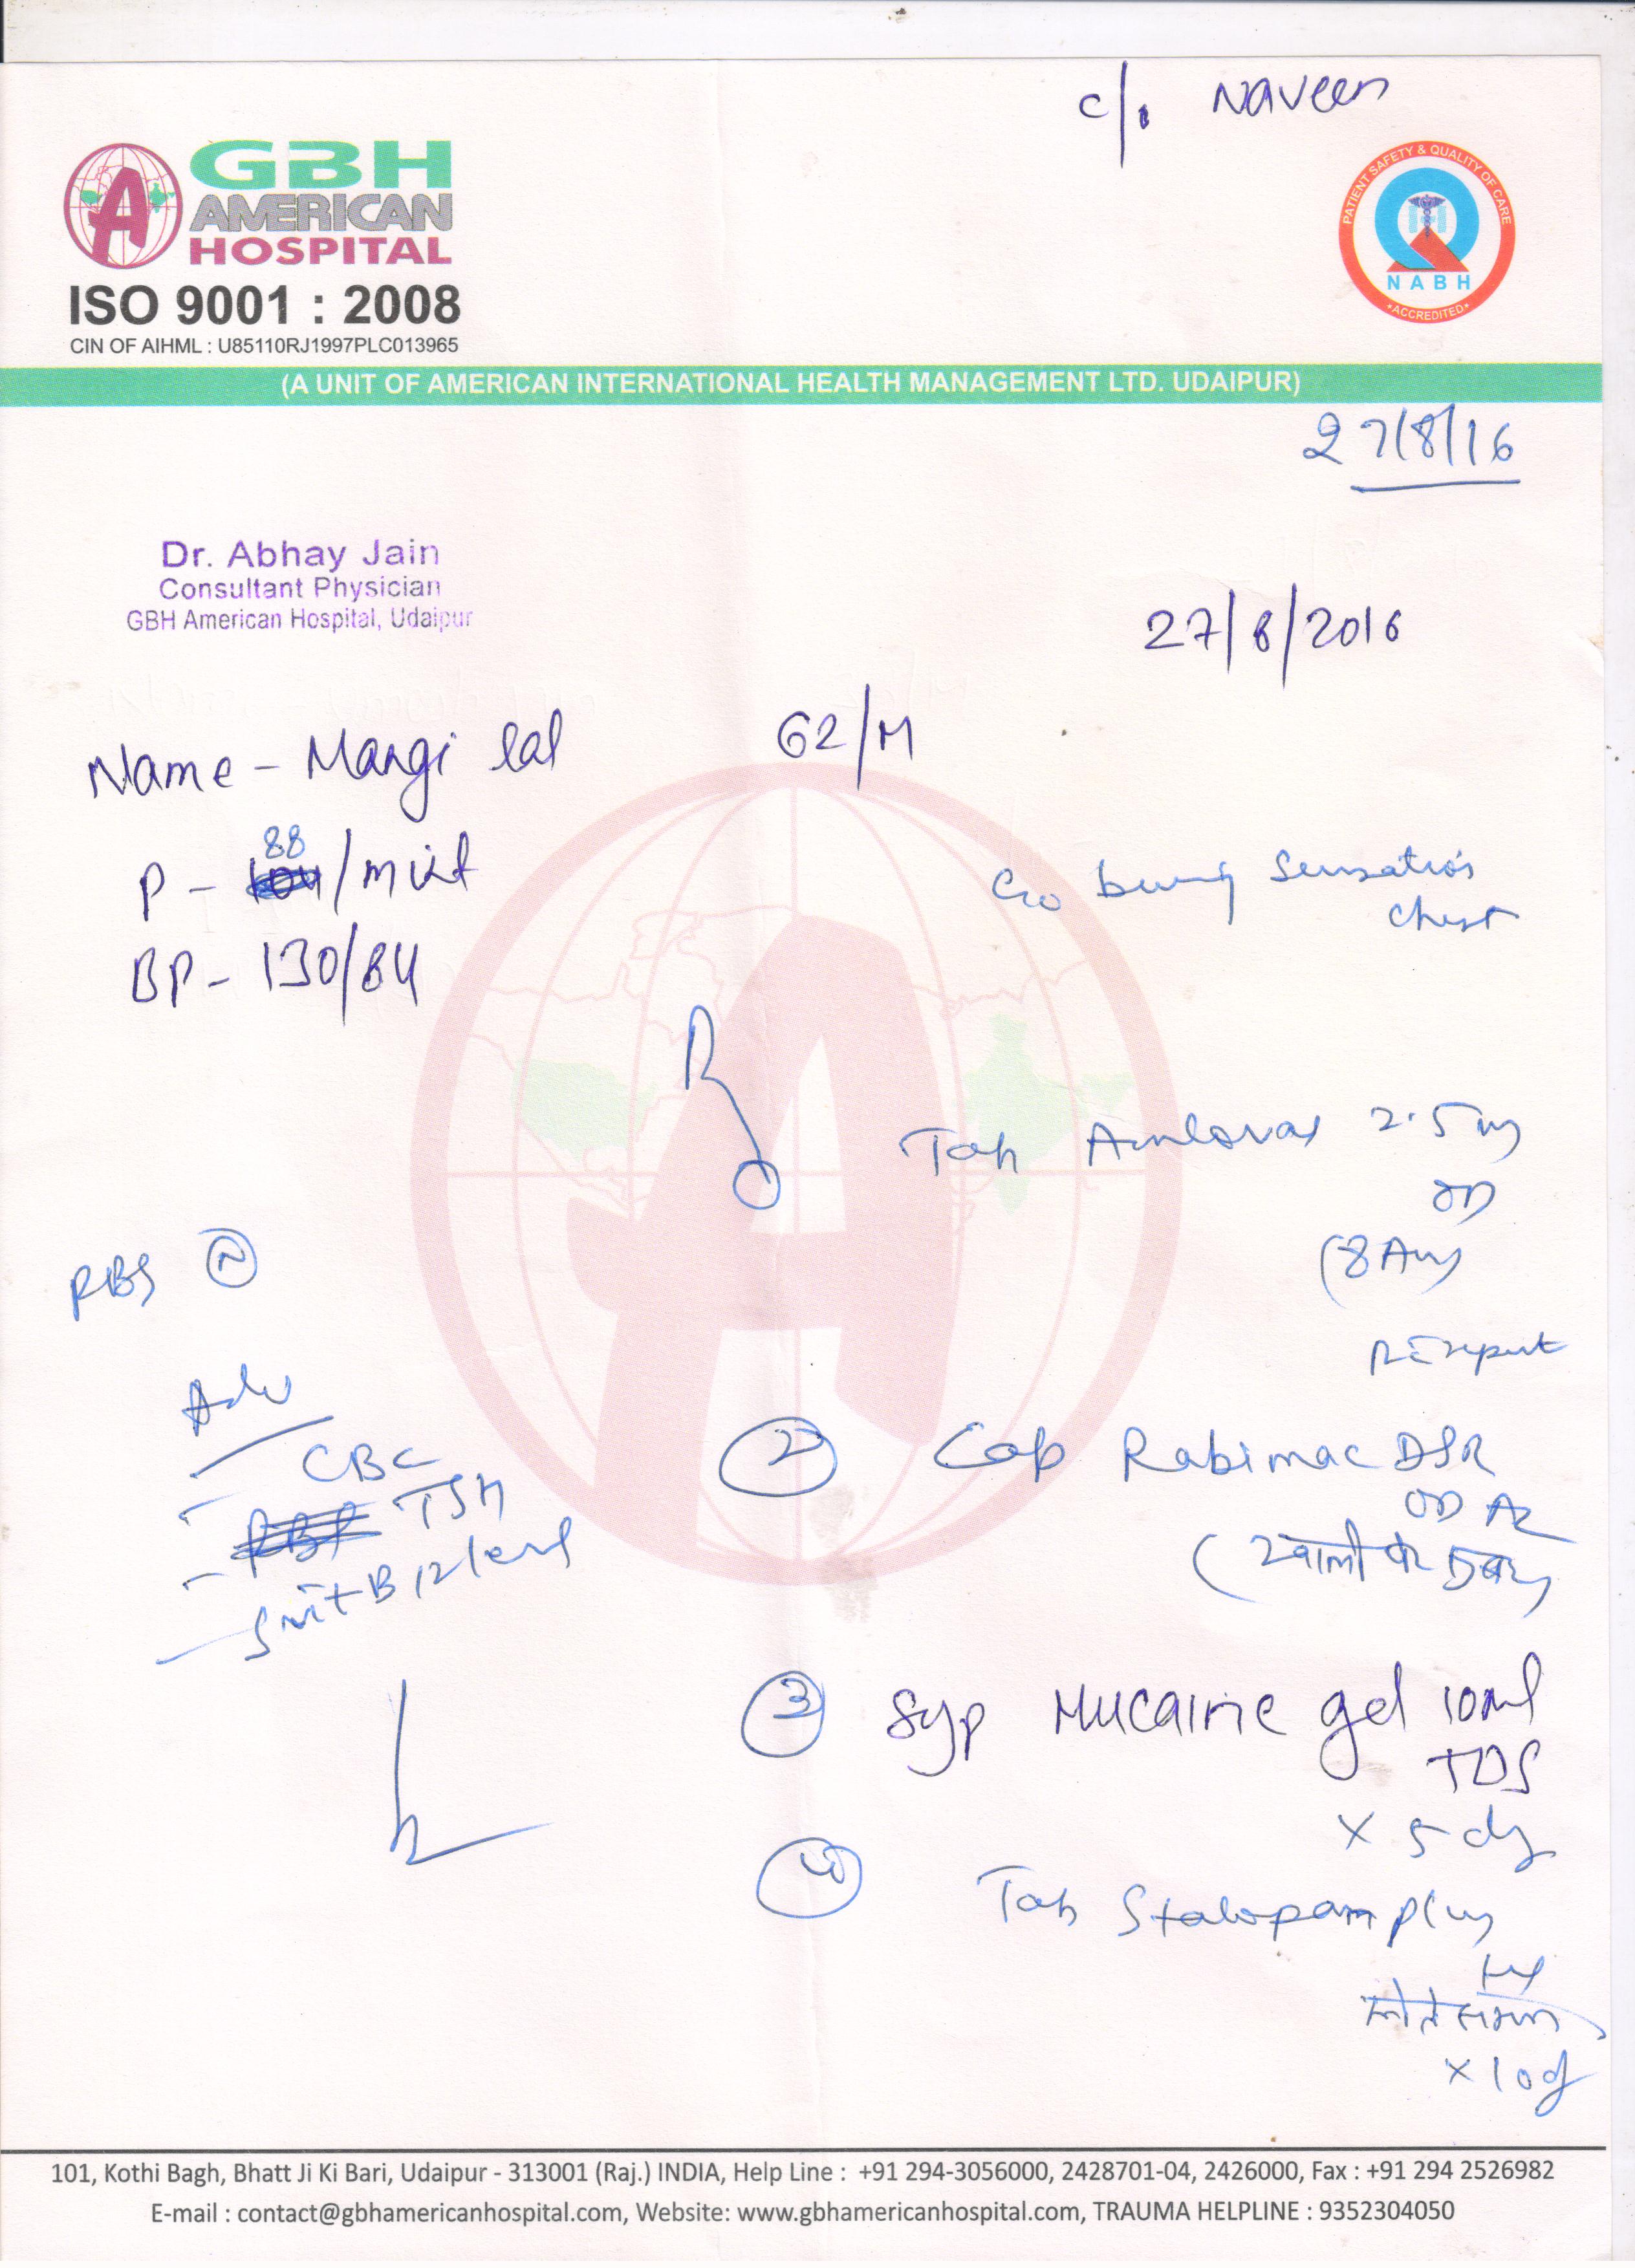 c/. Naveen
GBH
AMERICAN
HOSPITAL
ISO 9001 : 2008
CIN OF AIHML : U85110RJ1997PLC013965
PATIENT SAFETY & QUALITY OF CARE
NABH
ACCREDITED
(A UNIT OF AMERICAN INTERNATIONAL HEALTH MANAGEMENT LTD. UDAIPUR)
27/8/16
Dr. Abhay Jain
Consultant Physician
GBH American Hospital, Udaipur
27/8/2016
Name - Mangi lal 62/M
88
P - /mint
BP - 130/84
Sensation
Chest
Tab 2.5mg
OD
(8 Am)
RBS N
Adv
CBC
TSH
B12 level
2 Cap Rabimac DSR
OD
3 Syp Mucaine gel 10ml
TDS
x 5 dy
4 Tab Stalopam plus
x 10 d
101, Kothi Bagh, Bhatt Ji Ki Bari, Udaipur - 313001 (Raj.) INDIA, Help Line : +91 294-3056000, 2428701-04, 2426000, Fax : +91 294 2526982
E-mail : contact@gbhamericanhospital.com, Website: www.gbhamericanhospital.com, TRAUMA HELPLINE : 9352304050